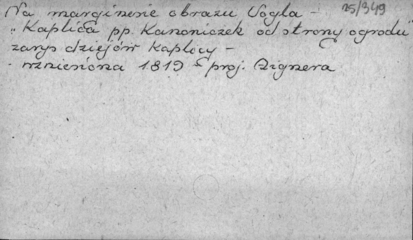 25/349
Na marginesie obrazu Vogla -
"Kaplica pp. Kanoniczek od strony ogrodu
zarys dziejów kaplicy -
wzniesiona 1819 - proj. Aignera